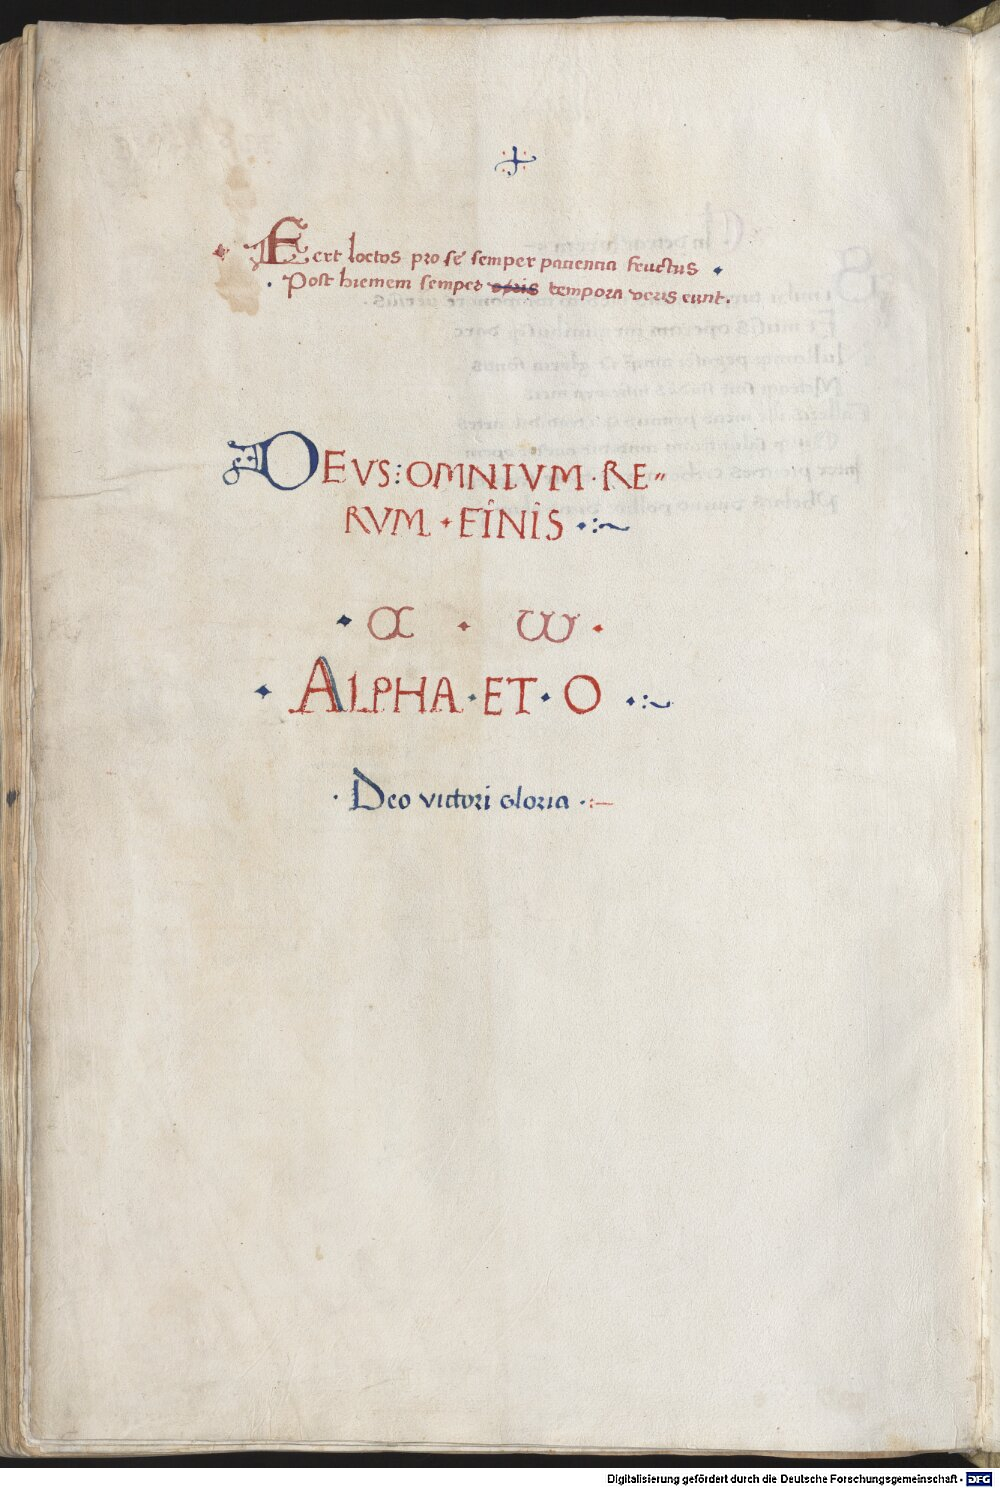 Fert loctos pro se semper patientia fructus
Post hiemem semper tempora veris eunt.
DEVS: OMNIVM · RE-
RVM · FINIS
α · ω ·
ALPHA · ET · O
· Deo victori gloria
Digitalisierung gefördert durch die Deutsche Forschungsgemeinschaft - DFG